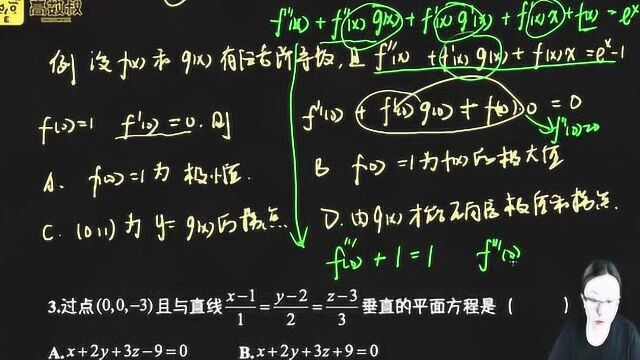 高数叔
f'''(x) + f''(x) g(x) + f'(x) g'(x) + f'(x) x + f(x) = e^x
例 设 f(x) 和 g(x) 有任意阶导数, 且 f''(x) + f'(x) g(x) + f(x) x = e^x - 1
f(0)=1 f'(0)=0. 则
f''(0) + f'(0) g(0) + f(0)·0 = 0
f''(0)=0
A. f(0)=1 为 极小值.
B f(0)=1 为 f(x) 的极大值
C. (0,1) 为 y=g(x) 的拐点
D. 由 g(x) 才能确定极值和拐点.
f'''(0) + 1 = 1 f'''(0)
3.过点(0,0,-3)且与直线(x-1)/1=(y-2)/2=(z-3)/3垂直的平面方程是（ ）
A.x+2y+3z-9=0 B.x+2y+3z+9=0